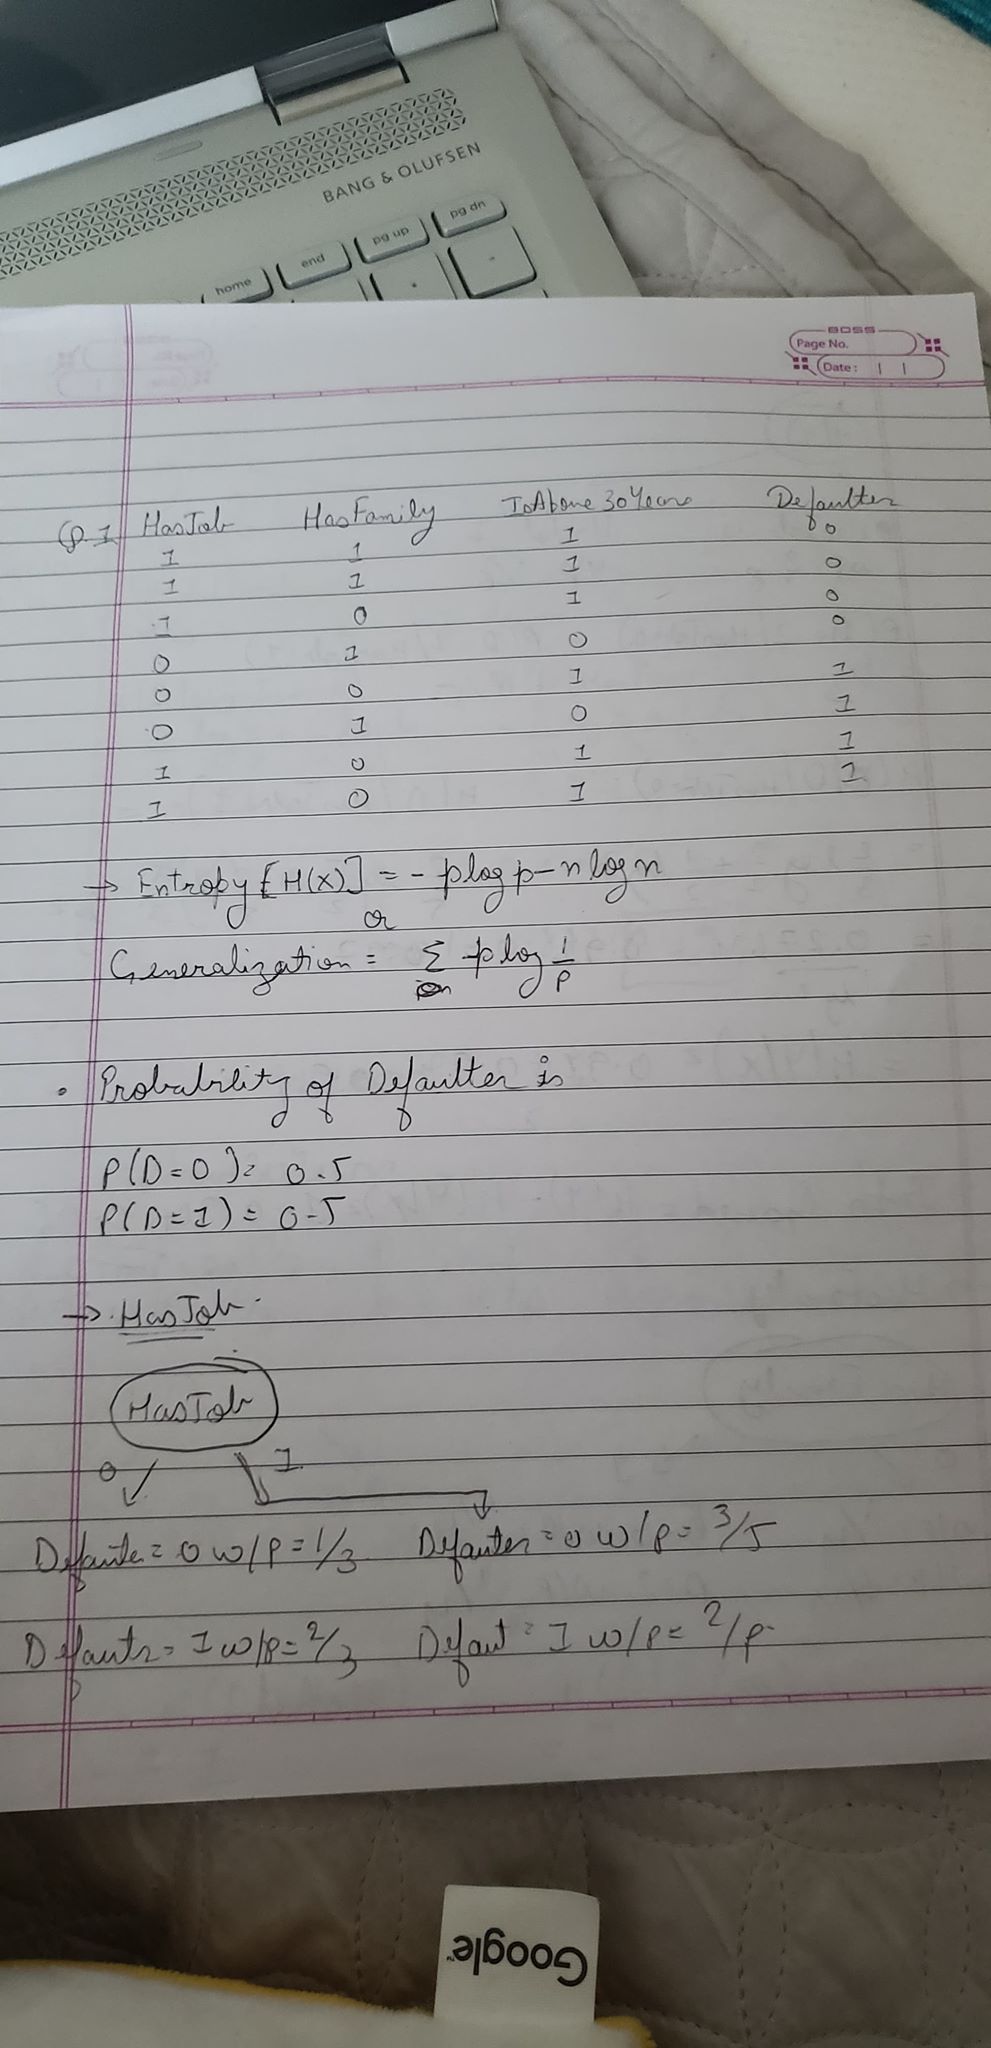 BANG & OLUFSEN
home end pg up pg dn
BOSS
Page No.
Date:
Q.1 HasJob HasFamily IsAbove 30 Years Defaulter
1 1 1 0
1 1 1 0
1 0 1 0
0 1 0 0
0 0 1 1
0 1 0 1
1 0 1 1
1 0 1 1
→ Entropy [H(X)] = - plogp - nlogn
or
Generalization = Σ plog 1/p
• Probability of Defaulter is
P(D=0) = 0.5
P(D=1) = 0.5
→ HasJob
HasJob
0 1
Defaulte = 0 w/p = 1/3 Defaulter = 0 w/p = 3/5
Defautr = 1 w/p = 2/3 Defaut = 1 w/p = 2/p
Google